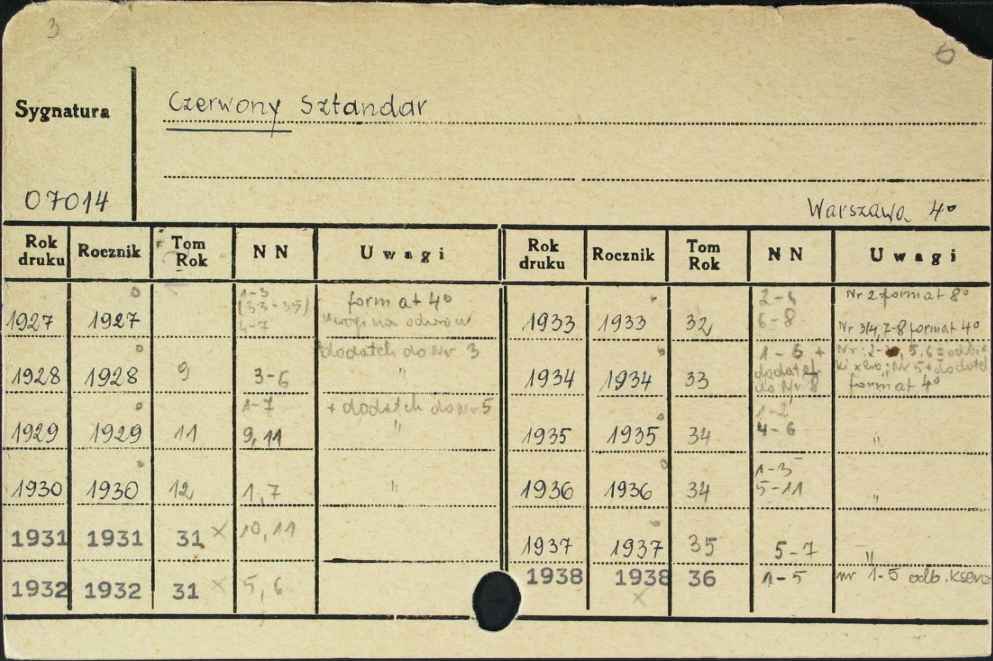 3
6
Sygnatura
Czerwony Sztandar
07014
Warszawa 4º
Rok druku Rocznik Tom Rok N N Uwagi Rok druku Rocznik Tom Rok N N Uwagi
1927 1927 1-3 (33-35) 4-7 format 4º
1928 1928 9 3-6 dodatek do nr 3 "
1929 1929 11 1-7 9, 11 + dodatek do nr 5 "
1930 1930 12 1, 7 "
1931 1931 31 x 10, 11
1932 1932 31 x 5, 6
1933 1933 32 6-8 Nr 2 format 8º Nr 3/4, 7-8 format 4º
1934 1934 33 1-6 + dodatek do Nr 8 format 4º
1935 1935 34 1-2 4-6 "
1936 1936 34 1-3 5-11 "
1937 1937 35 5-7 "
1938 1938 x 36 1-5 nr 1-5 odb. ksero